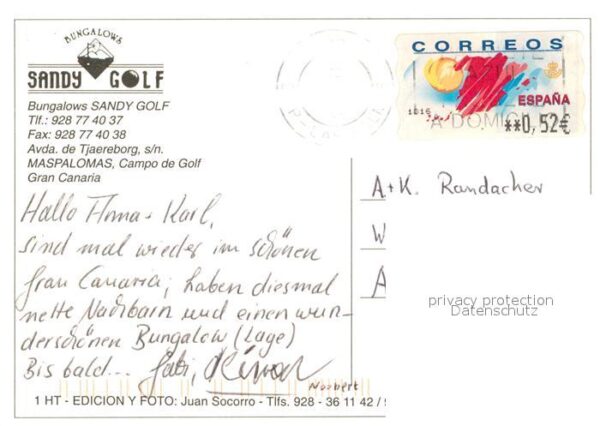 BUNGALOWS
SANDY GOLF
Bungalows SANDY GOLF
Tlf.: 928 77 40 37
Fax: 928 77 40 38
Avda. de Tjaereborg, s/n.
MASPALOMAS, Campo de Golf
Gran Canaria
CORREOS
ESPAÑA
A DOMIC
**0,52€
Hallo Anna + Karl,
sind mal wieder im schönen
Gran Canaria; haben diesmal
nette Nachbarn und einen wun-
derschönen Bungalow (Lage)
Bis bald... Gabi,
Norbert
A+K. Randacher
W
A
privacy protection
Datenschutz
1 HT - EDICION Y FOTO: Juan Socorro - Tlfs. 928 - 36 11 42 /